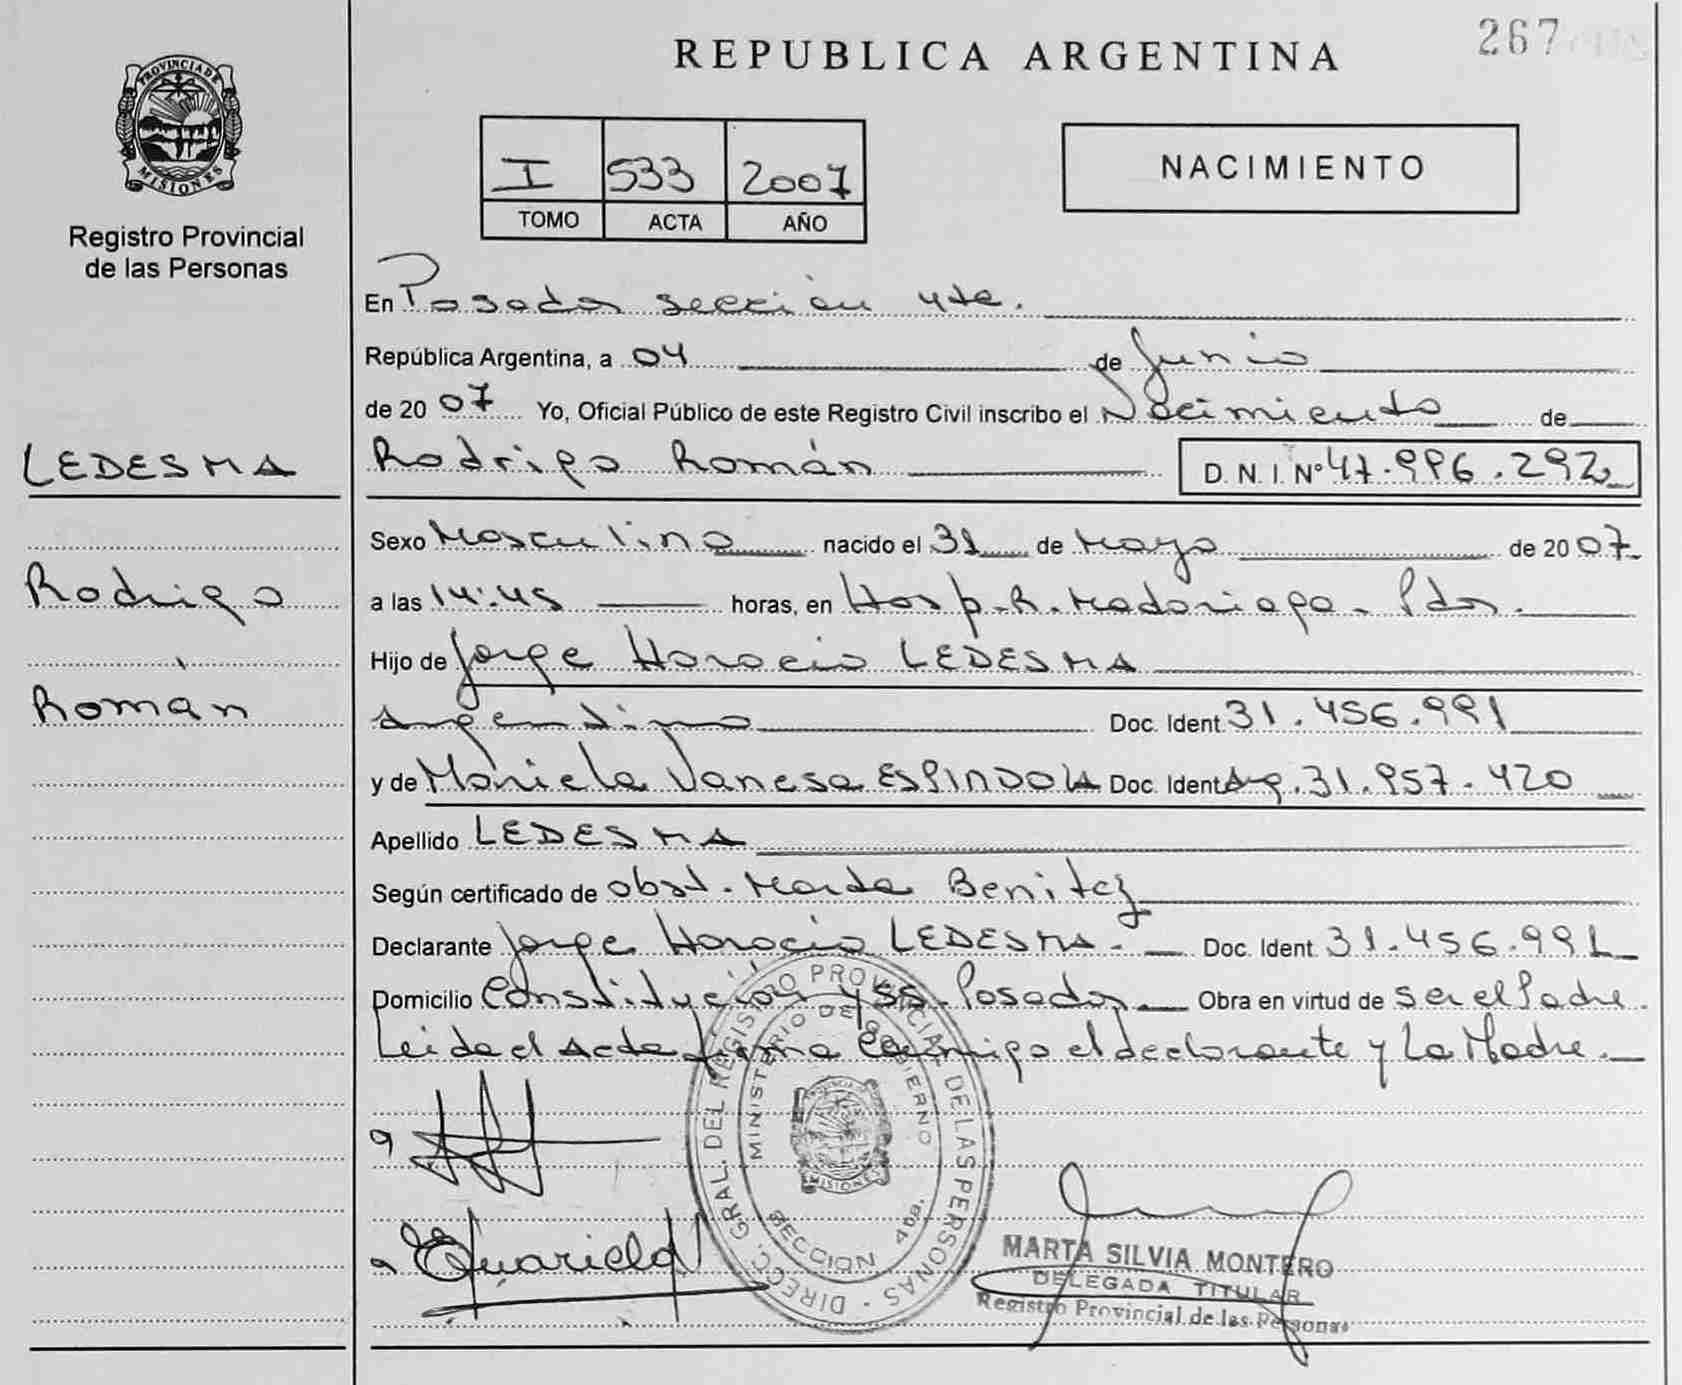 267
REPUBLICA ARGENTINA
PROVINCIA DE
MISIONES
Registro Provincial
de las Personas
I 533 2007
TOMO ACTA AÑO
NACIMIENTO
En Posadas sección 4ta.
República Argentina, a 04 de Junio
de 20 07 Yo, Oficial Público de este Registro Civil inscribo el Nacimiento de
LEDESMA
Rodrigo Román D. N. I. Nº 47.996.292
Sexo Masculino nacido el 31 de Mayo de 20 07
Rodrigo
a las 14:45 horas, en Hosp. R. Madariaga - Pdas.
Hijo de Jorge Horacio LEDESMA
Román
Argentino Doc. Ident. 31.456.991
y de Mariela Vanesa ESPINDOLA Doc. Ident Arg. 31.957.420
Apellido LEDESMA
Según certificado de obst. Marta Benitez
Declarante Jorge Horacio LEDESMA.- Doc. Ident. 31.456.991
Domicilio Constitución 455 - Posadas Obra en virtud de ser el Padre.
Leida el Acta firma conmigo el declarante y La Madre.
DIRECC. GRAL. DEL REGISTRO PROVINCIAL DE LAS PERSONAS
MINISTERIO DE GOBIERNO
PROVINCIA DE
MISIONES
SECCION 4ta.
Mariela
MARTA SILVIA MONTERO
DELEGADA TITULAR
Registro Provincial de las Personas